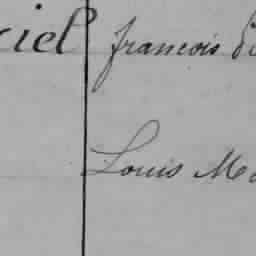 riel francois
Louis